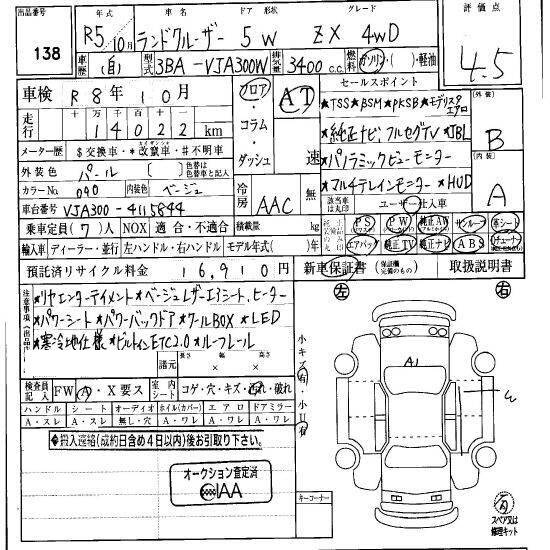 出品番号
138
年式
R5年10月
車名
ランドクルーザー
ドア 形状
5W
グレード
ZX 4WD
評価点
4.5
車歴
(自)
型式
3BA-VJA300W
排気量
3400 c.c.
燃料
ガソリン・( )・軽油
車検
R8年10月
フロア・コラム・ダッシュ
AT
速
セールスポイント
★TSS★BSM★PKSB★モデリスタエアロ
★純正ナビ、フルセグTV★JBL
★パノラミックビューモニター
★マルチテレインモニター★HUD
外装
B
内装
A
走行
十万千百十一
14022 km
メーター歴
$交換車・*改竄車・#不明車
外装色
パール
色替は色替車と記入
カラーNo.
090
内装色
ベージュ
冷房
AAC
無
該当車は丸印
ユーザー・仕入車
車台番号
VJA300-4115844
乗車定員 (7)人
NOX 適合・不適合
積載量
kg
PS
PW
純正AW
サンルーフ
革シート
輸入車
ディーラー・並行
左ハンドル・右ハンドル
モデル年式( )年
エアバッグ
純正TV
純正ナビ
ABS
預託済リサイクル料金
16,910円
新車保証書
(保証欄完備のもの)
取扱説明書
注意事項(出品店)
★リヤエンターテイメント★ベージュレザーエアシート、ヒーター
★パワーシート★パワーバックドア★クールBOX★LED
★寒冷地仕様★ビルトインETC2.0★ルーフレール
諸元
長さ
幅
高さ
× ×
小キズ有
小U有
左
右
A1
検査員記入
FW A・X要ス
室内シート
コゲ・穴・キズ・汚れ・破れ
ハンドル
シート
オーディオ
ホイル(カバー)
エアロ
ドアミラー
A・スレ
A・スレ
無し・穴
A・ワレ
A・ワレ
A・ワレ
◆搬入連絡(成約日含め4日以内)後お引取り下さい。
オークション査定済
AIAA
キーコーナー
スペア又は
修理キット